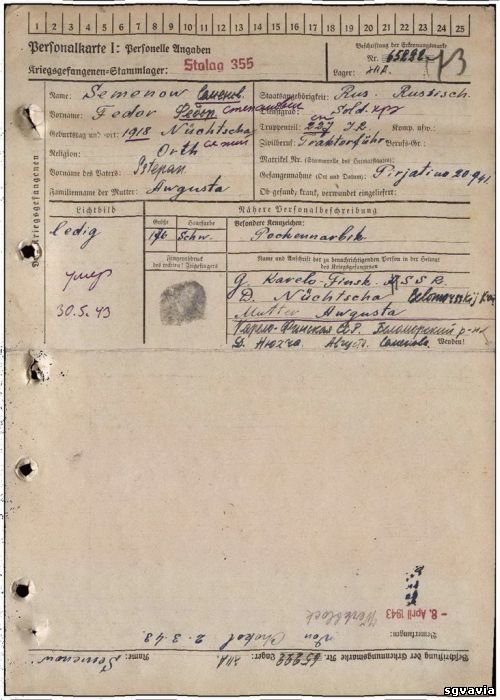 1 2 3 4 5 6 7 8 9 10 11 12 13 14 15 16 17 18 19 20 21 22 23 24 25
Personalkarte I: Personelle Angaben
Kriegsgefangenen-Stammlager: Stalag 355
Beschriftung der Erkennungsmarke
Nr.
Lager:
Name: Semenow Семенов
Vorname: Fedor Федор Степанович
Geburtstag und -ort: 1918 Nüchtscha
Religion: Orth
Vorname des Vaters: Stepan
Familienname der Mutter: Awgusta
Staatsangehörigkeit: Rus. Russisch.
Dienstgrad: Sold.
Truppenteil: 227 I.R. Komp. usw.:
Zivilberuf: Traktorführ Berufs-Gr.:
Matrikel Nr. (Stammrolle des Heimatstaates):
Gefangennahme (Ort und Datum): Pirjatino 20.9.41.
Ob gesund, krank, verwundet eingeliefert:
Des Kriegsgefangenen
Lichtbild
ledig
умер
30.5.43
Nähere Personalbeschreibung
Größe Haarfarbe Besondere Kennzeichen:
Schw. Pockennarbik
Fingerabdruck
des rechten! Zeigefingers
Name und Anschrift der zu benachrichtigenden Person in der Heimat
des Kriegsgefangenen
G. Karelo-Finsk. SSR.
D. Nüchtscha
Mutter Awgusta
Карело-Финская С.Р. Беломорский р-н
Д. Нюхча Август. Семенова. Wenden!
- 8. April 1943
Bemerkungen:
von Chokol 2.3.43
Beschriftung der Erkennungsmarke Nr. Lager:
Name: Semenow
sgvavia